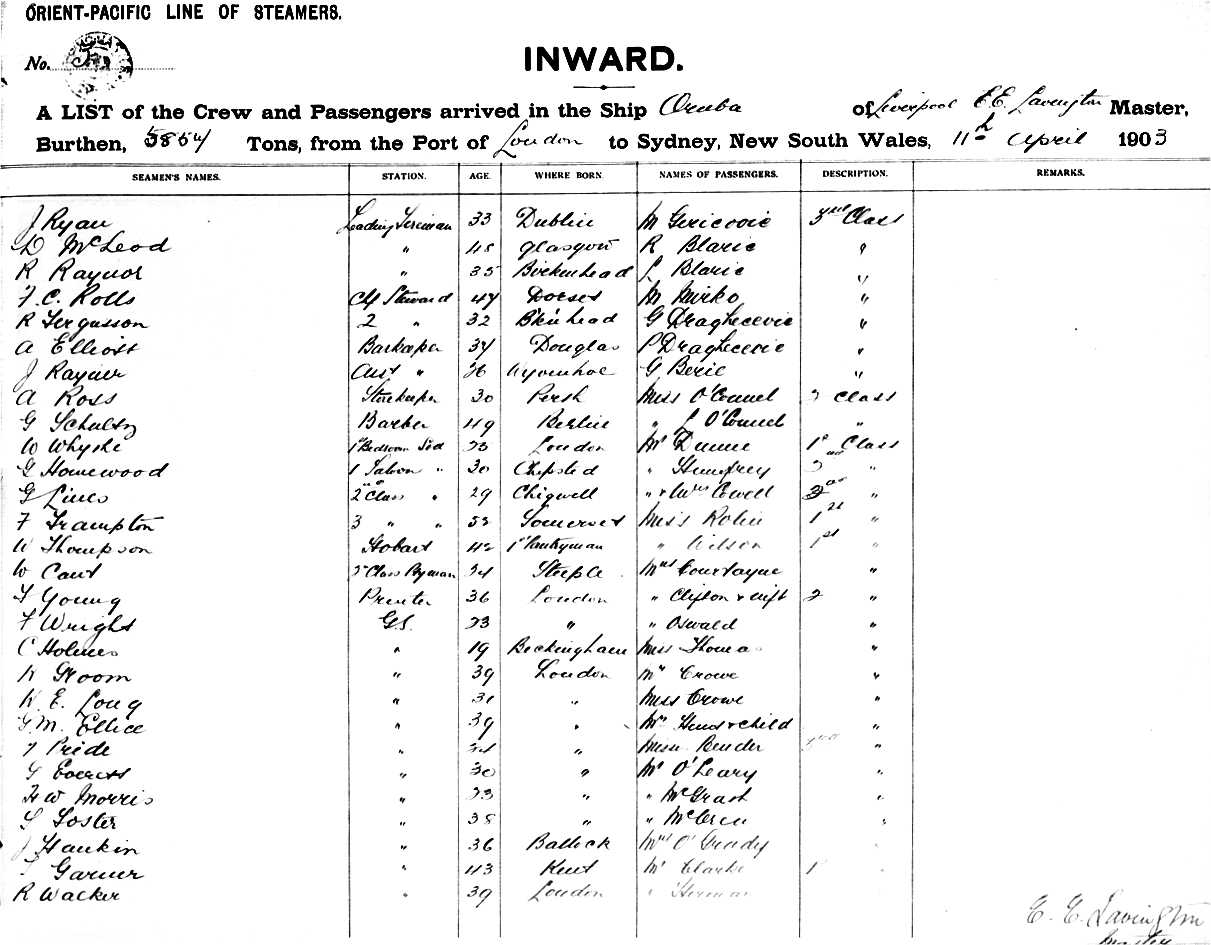 ORIENT-PACIFIC LINE OF STEAMERS.
No.
INWARD.
A LIST of the Crew and Passengers arrived in the Ship Oruba of Liverpool E.E. Lavington Master,
Burthen, 5857 Tons, from the Port of London to Sydney, New South Wales, 11th April 1903
SEAMEN'S NAMES. STATION. AGE. WHERE BORN. NAMES OF PASSENGERS. DESCRIPTION. REMARKS.
J Ryan Leading Fireman 33 Dublin M 3rd Class
D McLeod " 48 Glasgow R Blaric "
R Raynor " 35 Birkenhead L Blaric "
F. C. Rolls Chf Steward 47 Dorset M Mirko "
R Fergusson 2 " 32 B'kinhead G Draghecevic "
A Elliott Barkeeper 37 Douglas P Draghecevic "
J Rayner Asst " 26 Wyvenhoe G Beric "
A Ross Storekeeper 30 Perth Miss O'Connel 2 Class
G Schultz Barber 49 Berlin " L O'Connel "
W Whyske 1st Bedroom Std 23 London Mr Dunne 1st Class
G Homewood 1 Saloon " 30 Chipsted " Humfrey 2nd "
G Lines 2nd Class " 29 Chigwell " & Mrs Cowell 2nd "
F Frampton 3 " " 53 Somerset Miss Robin 1st "
W Thompson Hobart 42 1st Pantryman " Wilson 1st "
W Cant 2nd Class Pyman 24 Steeple Mrs Courtayne "
F Young Printer 36 London " Clifton & wife 2 "
F Wright G.S. 23 " " Oswald "
C Holmes " 19 Beckingham Miss Thomas "
W Groom " 39 London Mr Crowe "
W. E. Long " 31 " Miss Crowe "
G. M. Ellice " 39 " Mrs & child "
F Pride " 24 " Miss Bender 2nd "
G Everett " 30 " Mr O'Leary "
H W Morris " 23 " " McGrath "
G Foster " 38 " " McCrea "
J Hankin " 36 Ballock Mrs O'Grady "
Garner " 43 Kent Mr Clarke 1 "
R Wacker " 39 London "
E. E. Lavington
Master